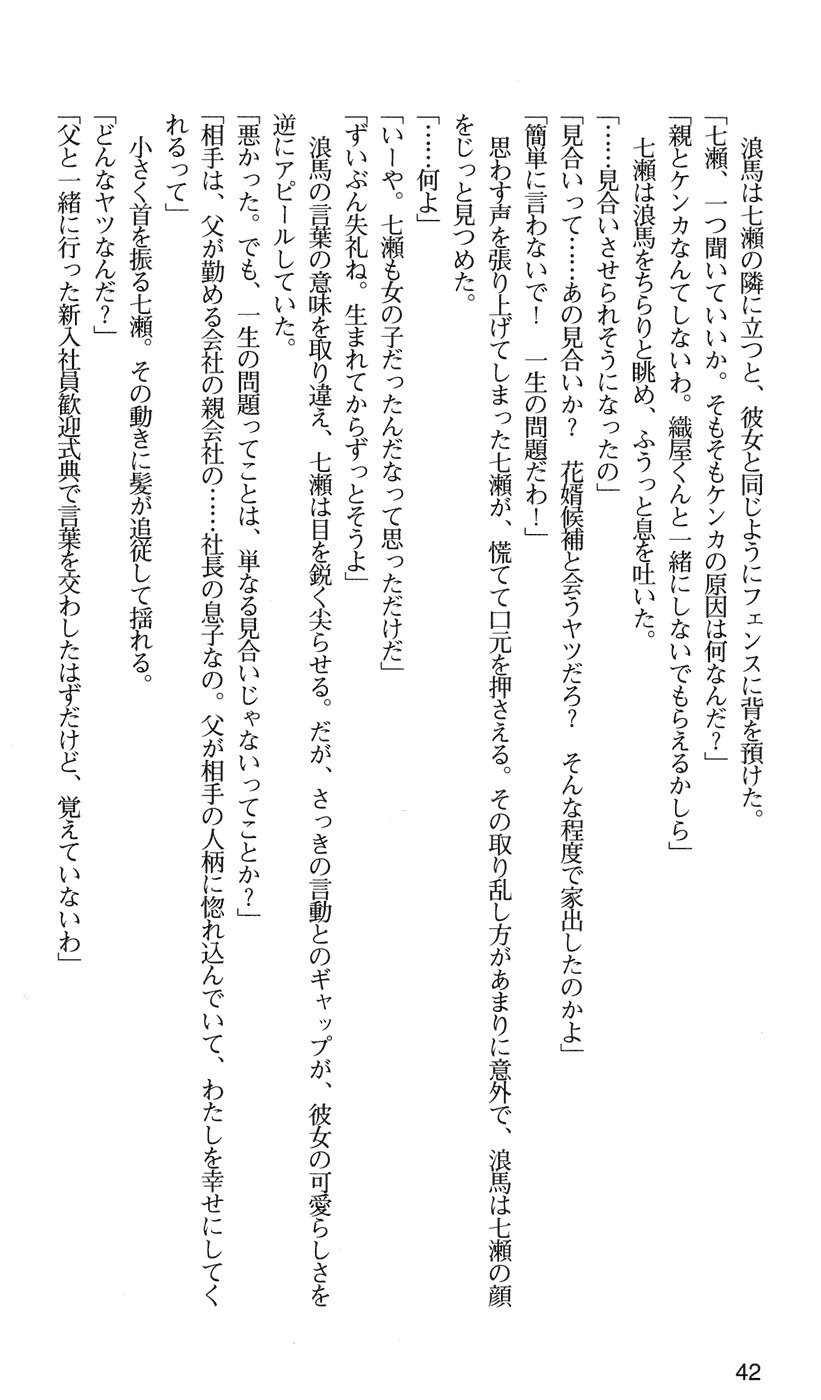 浪馬は七瀬の隣に立つと、彼女と同じようにフェンスに背を預けた。
「七瀬、一つ聞いていいか。そもそもケンカの原因は何なんだ？」
「親とケンカなんてしないわ。織屋くんと一緒にしないでもらえるかしら」
　七瀬は浪馬をちらりと眺め、ふうっと息を吐いた。
「……見合いさせられそうになったの」
「見合いって……あの見合いか？　花婿候補と会うヤツだろ？　そんな程度で家出したのかよ」
「簡単に言わないで！　一生の問題だわ！」
　思わず声を張り上げてしまった七瀬が、慌てて口元を押さえる。その取り乱し方があまりに意外で、浪馬は七瀬の顔
をじっと見つめた。
「……何よ」
「いーや。七瀬も女の子だったんだなって思っただけだ」
「ずいぶん失礼ね。生まれてからずっとそうよ」
　浪馬の言葉の意味を取り違え、七瀬は目を鋭く尖らせる。だが、さっきの言動とのギャップが、彼女の可愛らしさを
逆にアピールしていた。
「悪かった。でも、一生の問題ってことは、単なる見合いじゃないってことか？」
「相手は、父が勤める会社の親会社の……社長の息子なの。父が相手の人柄に惚れ込んでいて、わたしを幸せにしてく
れるって」
　小さく首を振る七瀬。その動きに髪が追従して揺れる。
「どんなヤツなんだ？」
「父と一緒に行った新入社員歓迎式典で言葉を交わしたはずだけど、覚えていないわ」
42